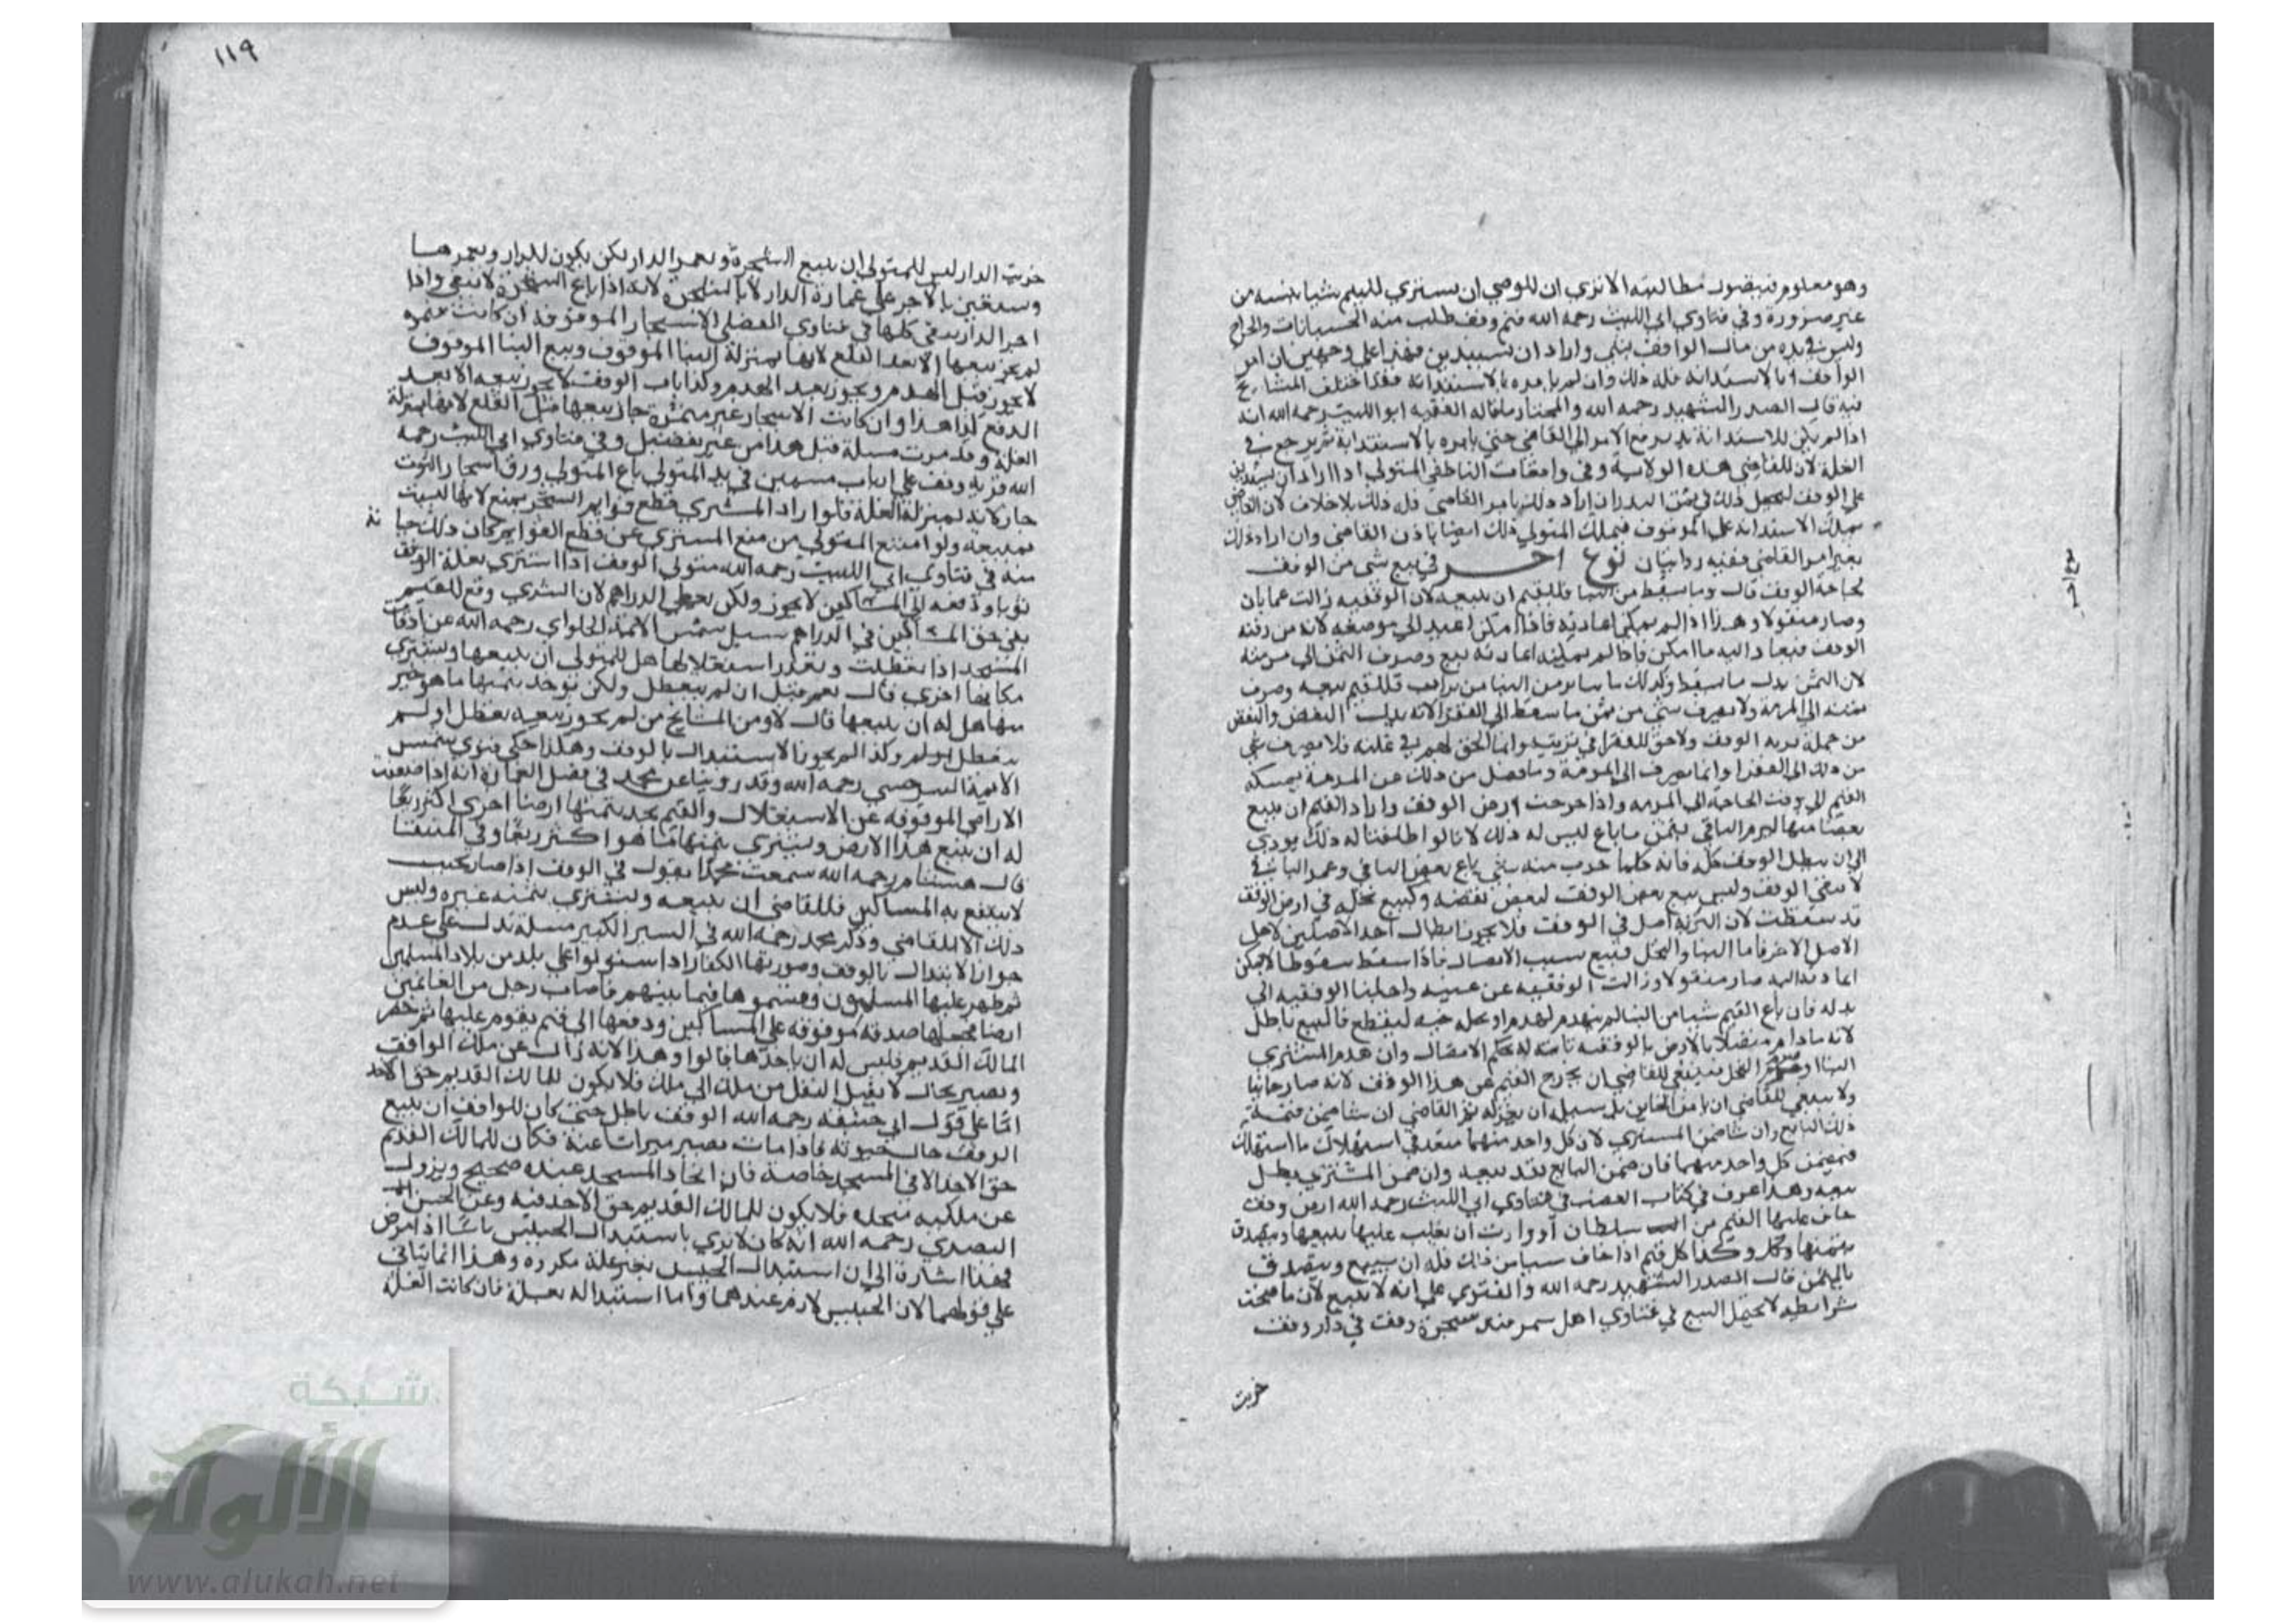 وهو معلوم فيتصور مطالبته الا تري ان للوصي ان يستري لليتيم شيا بنسيه من
غير ضرورة وفي فتاوي ابي الليث رحمه الله قيم وقف طلب منه الجبايات والخراج
وليس في يده من مال الوقف شي واراد ان يستدين فهذا علي وجهين ان امر
الواقف بالاستدانة فله ذلك وان لم يامره بالاستدانة فقد اختلف المشايخ
فيه قال الصدر الشهيد رحمه الله والمختار ما قاله الفقيه ابو الليث رحمه الله انه
اذا لم يكن للاستدانة بد يرفع الامر الي القاضي حتي يامره بالاستدانة ثم يرجع في
الغلة لان للقاضي هذه الولاية وفي واقعات الناطفي المتولي اذا اراد ان يستدين
علي الوقف ليجعل ذلك في ثمن البذر ان اراد ذلك بامر القاضي فله ذلك بلا خلاف لان القاضي
يملك الاستدانه علي الموقوف فيملك المتولي ذلك ايضا باذن القاضي وان اراد ذلك
بغير امر القاضي ففيه روايتان نوع اخر في بيع شي من الوقف
لحاجة الوقف قال وما سقط من البنا فللقيم ان يبيعه لان الوقفيه زالت عما بان
وصار منقولا وهذا اذا لم يمكن اعادته فاذا امكن اعيد الي موضعه لانه من
الوقف فيعاد اليه ما امكن فاذا لم يمكنه اعادته بيع وصرف الثمن الي مرمته
لان الثمن بدل ما سقط وكذلك ما يباين من البنا من فللقيم بيعه وصرف
ثمنه الي المرمة ولا يصرف شي من ثمن ما سقط الي الفقرا لانه بدل النقض والنقض
من جملة تربة الوقف ولا حق للفقرا في تربته وانما الحق لهم في غلته فلا يصرف شي
من ذلك الي الفقرا وانما يصرف الي المرمة وما فضل من ذلك عن المرمة يمسكه
القيم الي وقت الحاجة الي المرمه واذا خربت ارض الوقف واراد القيم ان يبيع
بعضا منها ليرم الباقي بثمن ما باع ليس له ذلك لانا لو اطلقنا له ذلك يودي
الي ان يبطل الوقف كله فانه كلما خرب منه شي باع بعض الباقي وعمر الباقي
لا يبقي الوقف وليس بيع بعض الوقف لبعض نقضه وكبيع نخلة في ارض الوقف
قد سقطت لان التربة اصل في الوقف فلا يجوز ابطال احد الاصلين لاجل
الاصل الاخر فاما البنا والنخل فتبع بسبب الاتصال فاذا سقط سقوطا لا يمكن
اعادته اليه صار منقولا وزالت الوقفيه عن عينه واحلنا الوقفيه الي
بدله فان باع القيم شيا من البنا لم ينهدم ليهدم او نخله حيه ليقطع فالبيع باطل
لانه ما دام متصلا بالارض بالوقفيه ثابته له بحكم الاتصال وان هدم المشتري
البنا او النخل فينبغي للقاضي ان يخرج القيم عن هذا الوقف لانه صار خاينا
ولا ينبغي للقاضي ان يامن الخاين بل سبيله ان يعزله ثم القاضي ان شا ضمن قيمة
ذلك البايع وان شا ضمن المستري لان كل واحد منهما متعد في استهلاك ما استهلك
فيضمن كل واحد منهما فان ضمن البايع نفذ بيعه وان ضمن المشتري بطل
بيعه وهذا عرف في كتاب الغصب في فتاوي ابي الليث رحمه الله ارض وقف
خاف عليها القيم من سلطان او وارث ان يغلب عليها يبيعها ويتصدق
بثمنها وكذا كل قيم اذا خاف شيا من ذلك فله ان يبيع ويتصدق
بالثمن قال الصدر الشهيد رحمه الله والفتوي علي انه لا يبيع لان ما صحت
شرايطه لا تحتمل البيع في فتاوي اهل سمرقند شجرة وقف في دار وقف
خربت
نوع اخر
١١٩
خربت الدار ليس للمتولي ان يبيع الشجرة ويعمر الدار لكن يكون للدار ويعمرها
ويستعين بالاجر علي عمارة الدار لا بالشجرة لانه اذا باع الشجرة لا تبقي واذا
اجر الدار يبقي كلها في فتاوي الفضلي الاشجار الموقوفة ان كانت مثمره
لم يجز بيعها الا بعد القلع لانها بمنزلة البنا الموقوف وبيع البنا الموقوف
لا يجوز قبل الهدم ويجوز بعد الهدم وكذا باب الوقف لا يجوز بيعه الا بعد
الدفع كذا هذا وان كانت الاشجار غير مثمرة جاز بيعها قبل القلع لانها بمنزلة
الغلة وقد مرت مسلة قبل هذا من غير تفصيل وفي فتاوي ابي الليث رحمه
الله قرية وقف علي ارباب مسمين في يد المتولي باع المتولي ورق اشجار التوت
جاز لانه بمنزلة الغلة فلو اراد المشتري قطع قوايم الشجر يمنع لانها ليست
بمبيعه ولو امتنع المتولي من منع المستري عن قطع القوايم كان ذلك خيا نة
منه في فتاوي ابي الليث رحمه الله متولي الوقف اذا استري بغلة الوقف
ثوبا ودفعه الي المساكين لا يجوز ولكن يعطي الدراهم لان الشري وقع للقيم
بقي حق المساكين في الدراهم سيل شمس الايمة الحلواي رحمه الله عن اوقاف
المسجد اذا تعطلت وتعذر استغلالها هل للمتولي ان يبيعها ويشتري
مكانها اخري قال نعم قيل ان لم يتعطل ولكن يوجد بثمنها ما هو خير
منها هل له ان يبيعها قال لا ومن المشايخ من لم يجوز بيعه تعطل او لم
يتعطل وكذا لم يجوز الاستبدال بالوقف وهكذا حكي فتوي شمس
الايمة السرخسي رحمه الله وقد روينا عن محمد في فصل العمارة انه اذا ضعفت
الاراضي الموقوفه عن الاستغلال والقيم يجد بثمنها ارضا اخري اكثر ريعا
له ان يبيع هذا الارض ويشتري بثمنها ما هو اكثر ريعا وفي المنتقا
قال هشام رحمه الله سمعت محمدا يقول في الوقف اذا صار بحيث
لا ينتفع به المساكين فللقاضي ان يبيعه ويشتري بثمنه غيره وليس
ذلك الا للقاضي وذكر محمد رحمه الله في السير الكبير مسلة تدل علي عدم
جواز الاستبدال بالوقف وصورتها الكفار اذا استولوا علي بلد من بلاد المسلمين
ثم ظهر عليها المسلمون وقسموها فيما بينهم فاصاب رجل من الغانمين
ارضا فجعلها صدقه موقوفه علي المساكين ودفعها الي قيم يقوم عليها ثم حضر
المالك القديم فليس له ان ياخذها قالوا وهذا لانه زال عن ملك الواقف
ويصير بحال لا يقبل النقل من ملك الي ملك فلا يكون للمالك القديم حق الاخذ
اما علي قول ابي حنيفه رحمه الله الوقف باطل حتي كان للواقف ان يبيع
الوقف حال حيوته فاذا مات يصير ميراثا عنه فكان للمالك القديم
حق الاخذ الا في المسجد خاصة فان اتخاذ المسجد عنده صحيح ويزول
عن ملكيه متخذه فلا يكون للمالك القديم حق الاخذ فيه وعن الحسن
البصري رحمه الله انه كان لا يري باستبدال الحبيس باسا اذا مرض
فهذا اشارة الي ان استبدال الحبيس بغير علة مكروه وهذا انما يتاتي
علي قولهما لان الحبيس لازم عندهما واما استبداله بعلة فان كانت العلة
شبكة
الألوكة
www.alukah.net